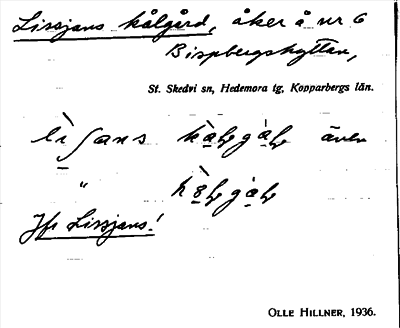 Lissjans kålgård, åker å nr 6
Bispbergshyttan,
St. Skedvi sn, Hedemora tg, Kopparbergs län.
även
"
Jfr Lissjans!
OLLE HILLNER, 1936.